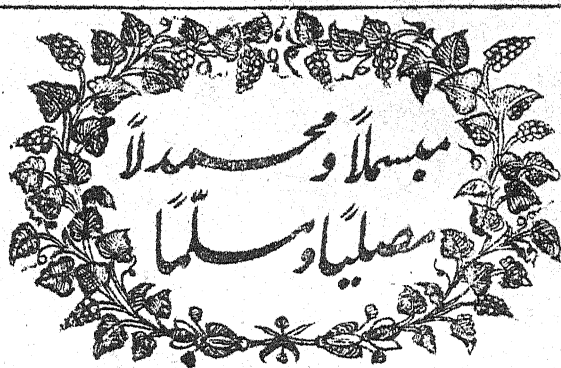 مبسملاً ومحمدلاً
مصلياً ومسلّماً